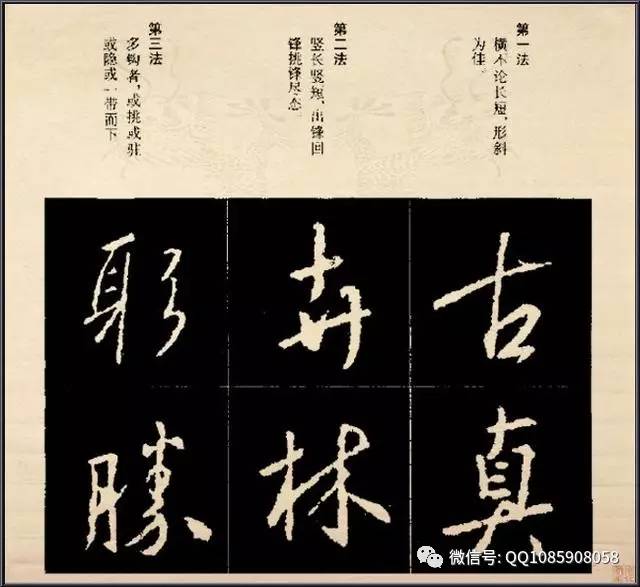 第一法
横不论长短，形斜
为佳。
第二法
竖长竖短，出锋回
锋挑锋尽态
第三法
多钩者，或挑或驻
或隐或一带而下
古
真
卉
林
勝
微信号: QQ1085908058